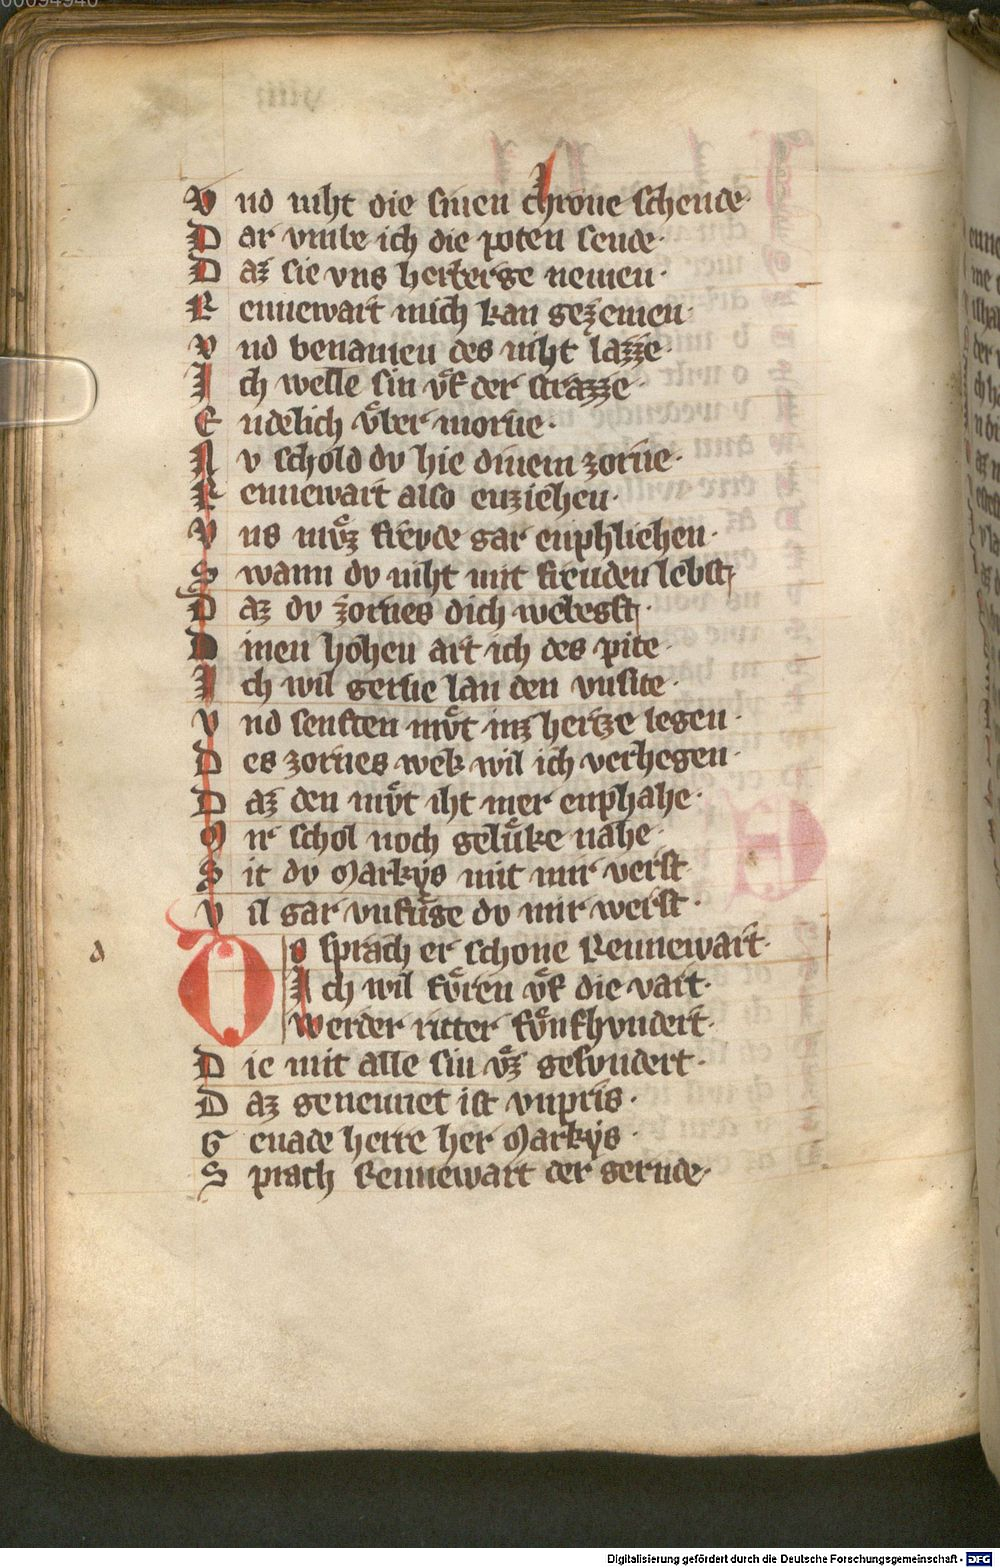 Vnd niht die sinen chrone schende·
Dar vmbe ich die poten sende·
Daz sie vns herberge nemen·
Rennewart mich kan gezemen
Vnd benamen des niht lazze·
Ich welle sin vͦf der strazze·
Endelich vͤber morne·
Nv schold dv hie dinem zorne·
Rennewart also enziehen·
Vns mvͦz frevde gar enphliehen·
Swann dv niht mit freuden lebst
Daz dv zornes dich webegst·
Dinen hohen art ich des pite·
Ich wil gerne lan den vnsite·
Vnd senften mvͦt inz hertze legen·
Des zornes wek wil ich verhegen·
Daz den mvͦt iht mer enphahe·
Mir schol noch gelvͤke nahe·
Sit dv Markys mit mir verst
Vil gar vnfuͤge dv mir werst·
a
Do sprach er schone Rennewart·
Ich wil fvͤren vͦf die vart·
werder ritter fvͤnfhvndert·
Die mit alle sin vͦz gesvndert·
Daz genennet ist vnpris·
Genade herre her Markys·
Sprach Rennewart der gernde·
Digitalisierung gefördert durch die Deutsche Forschungsgemeinschaft - DFG